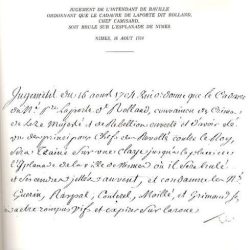 JUGEMENT DE L'INTENDANT DE BAVILLE
ORDONNANT QUE LE CADAVRE
DE LAPORTE DIT ROLLAND,
CHEF CAMISARD,
SOIT BRULE SUR L'ESPLANADE DE NIMES.
NIMES, 16 AOUT 1704
Jugement du 16 aout 1704 Qui ordonne que le Cadavre
Laporte d' Rolland, convaincu de Crimes
de leze Majesté et de Rebellion et d'avoir
des principaux Chefs des Revoltés contre le Roy,
sera Traine sur une Claye jusques à la place
l'Esplanade de la ville de Nimes où il sera brulé
et ses cendres jettées au vent, et condamne les N.
Guerin, Raspal, Couterel, Maillé, et Grimaud
a estre rompus vifs et expirer sur la roue